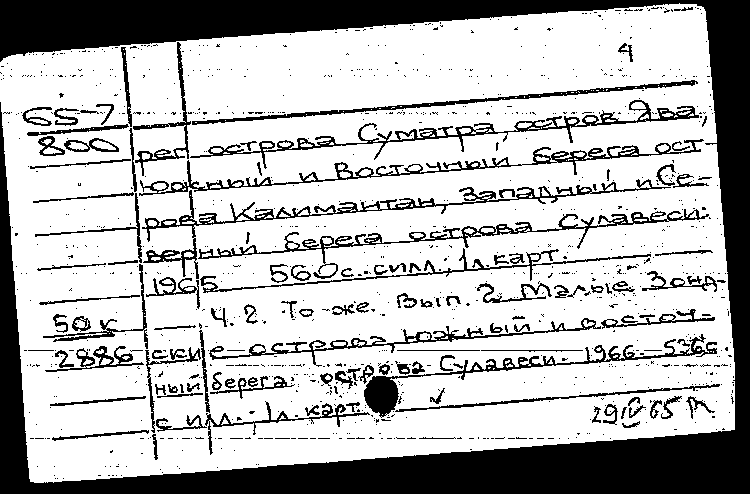 4
65-7
800 рег острова Суматра, остров Ява,
Южный и Восточный берега ост
рова Калимантан, Западный и Се-
верный берега острова Сулавеси.
1965 560 с. с илл.; 1 л. карт.
50к Ч. 2. То же. Вып. 2. Малые Зонд-
2886 ские острова, южный и восточ-
ный берега острова Сулавеси. 1966. 536 с.
с илл.; 1 л. карт.
29 IV 65